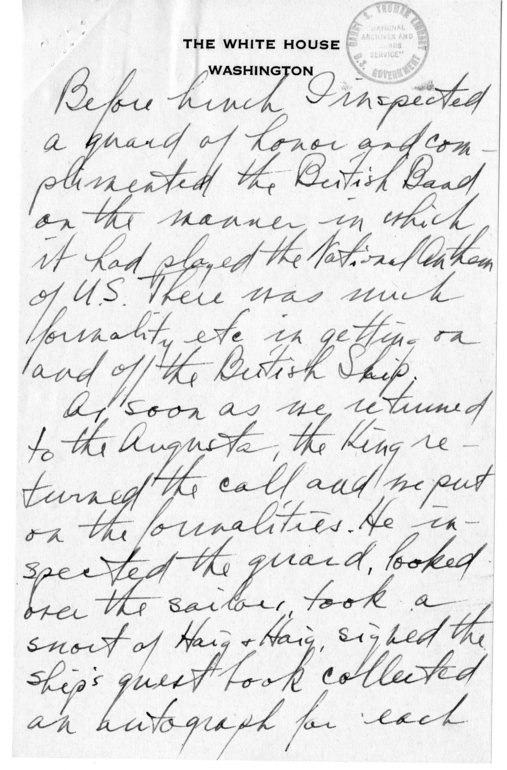 THE WHITE HOUSE
WASHINGTON
HARRY S. TRUMAN LIBRARY
"NATIONAL
ARCHIVES AND
RECORDS
SERVICE"
U.S. GOVERNMENT
Before lunch I inspected
a guard of honor and com-
plimented the British Band
on the manner in which
it had played the National Anthem
of U.S. There was much
formality etc in getting on
and off the British Ship.
As soon as we returned
to the Augusta, the King re-
turned the call and we put
on the formalities. He in-
spected the guard, looked
over the sailors, took a
snort of Haig & Haig, signed the
ship's guest book collected
an autograph for each